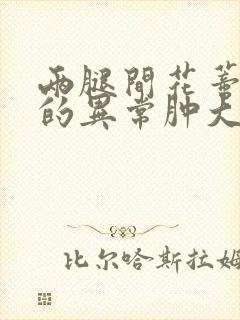 两腿間花蒂
的異常肿大
比尔哈斯拉姆